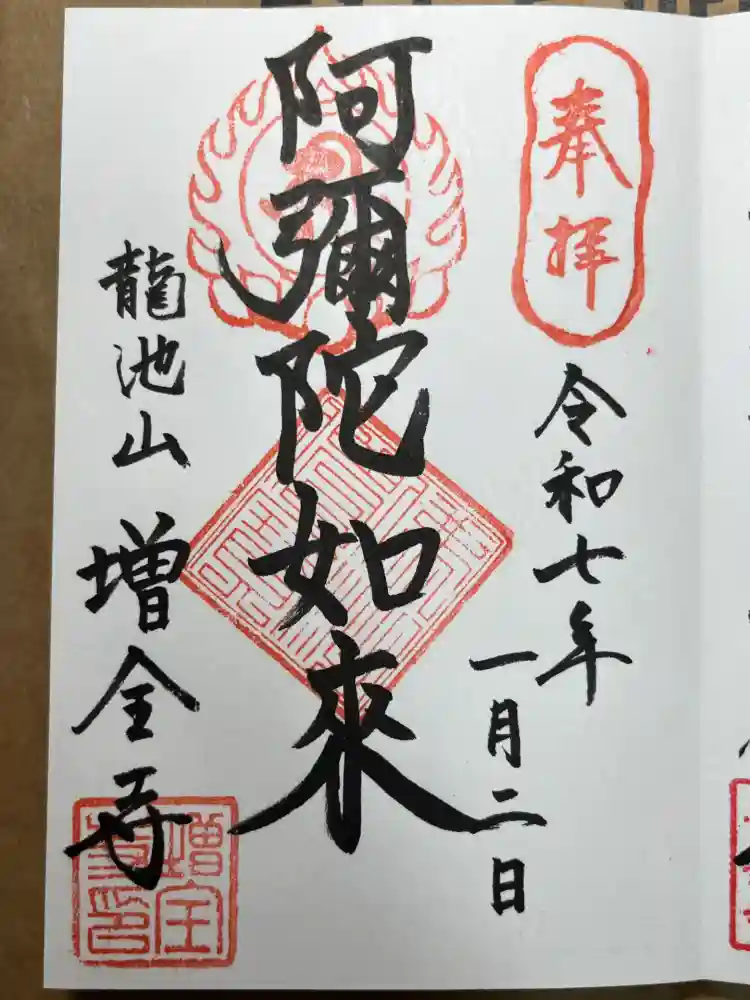 奉拝
令和七年
一月二日
阿彌陀如來
龍池山
増全寺
増全
寺印